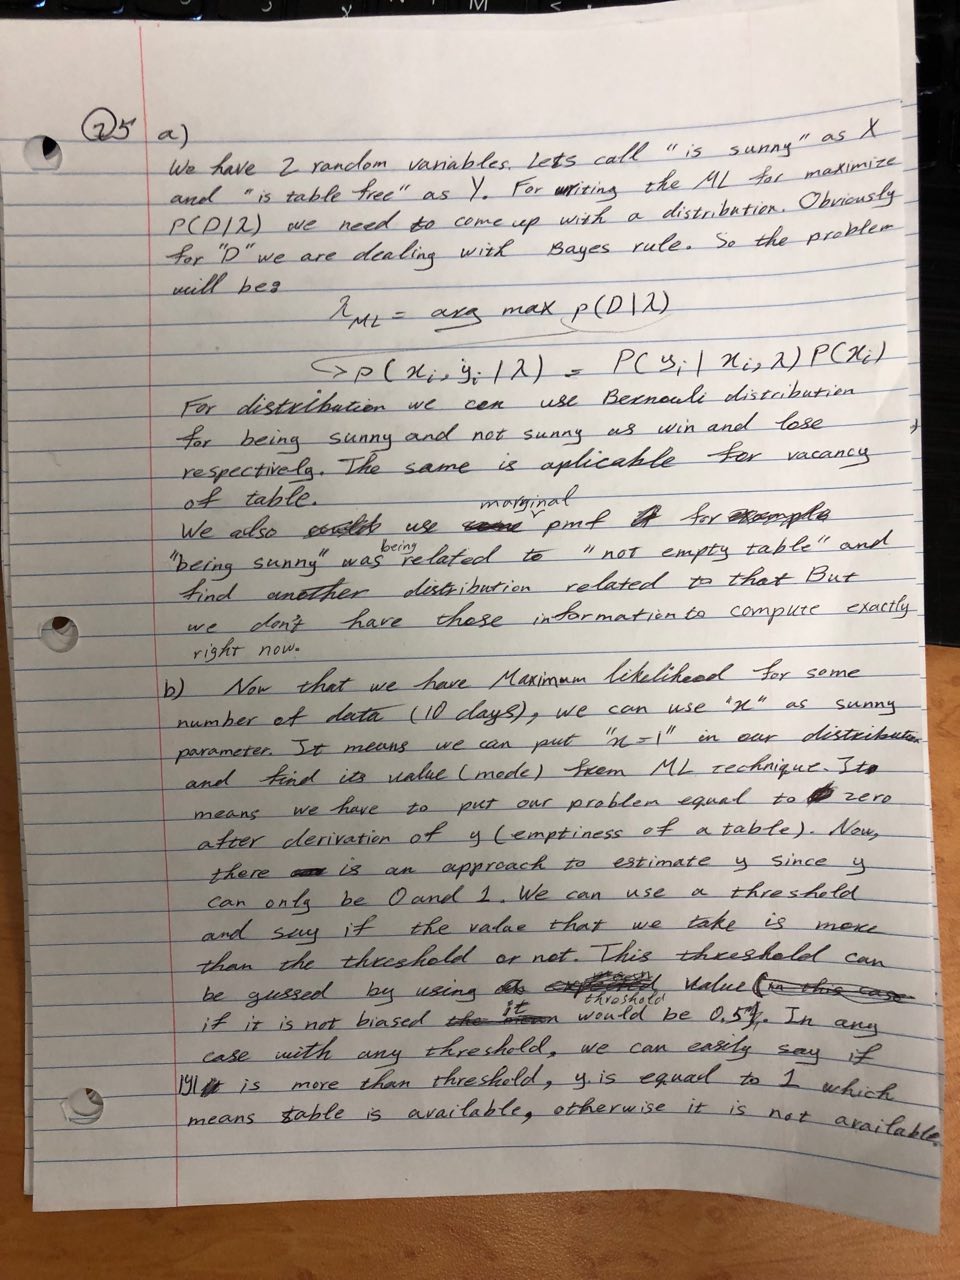 Q5 a)
We have 2 random variables. Lets call "is sunny" as X
and "is table free" as Y. For writing the ML for maximize
P(D|λ) we need to come up with a distribution. Obviously
for "D" we are dealing with Bayes rule. So the problem
will be:
λ_ML = arg max p(D|λ)
↳ p(x_i, y_i | λ) = P(y_i | x_i, λ) P(x_i)
For distribution we can use Bernouli distribution
for being sunny and not sunny as win and lose
respectively. The same is aplicable for vacancy
of table.
We also use marginal pmf for
"being sunny" was being related to "not empty table" and
find another distribution related to that But
we don't have those information to compute exactly
right now.
b) Now that we have Maximum likelihood for some
number of data (10 days), we can use "x" as sunny
parameter. It means we can put "x=1" in our distribution
and find its value (mode) from ML technique. It
means we have to put our problem equal to zero
after derivation of y (emptiness of a table). Now,
there is an approach to estimate y since y
can only be 0 and 1. We can use a threshold
and say if the value that we take is more
than the threshold or not. This threshold can
be gussed by using mean value
if it is not biased it threshold would be 0.5. In any
case with any threshold, we can easily say if
|y| is more than threshold, y is equal to 1 which
means table is available, otherwise it is not available.